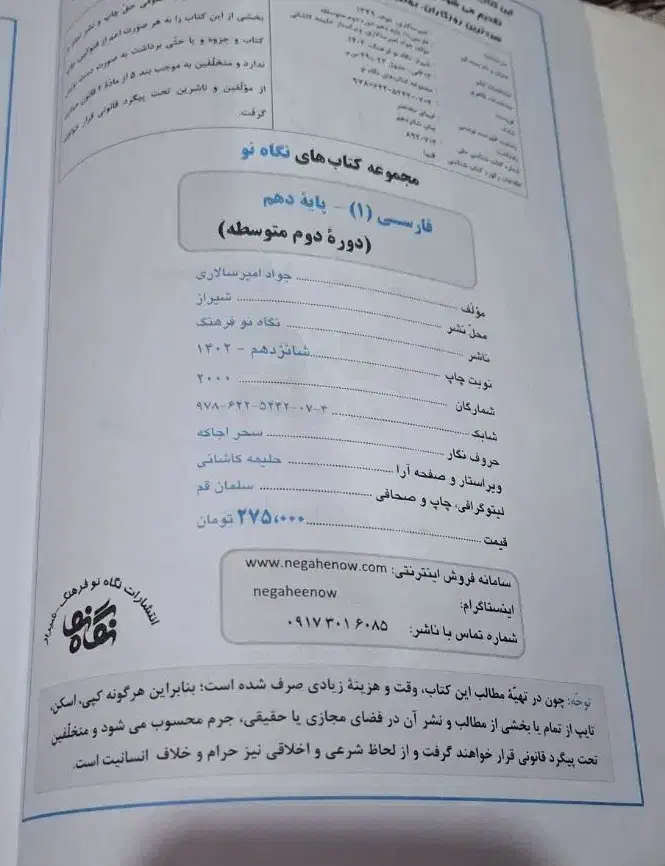 بخشی از این کتاب را به هر صورت اعم از
کتاب و جزوه و یا حتّی برداشت به صورت دست
ندارد و متخلّفین به موجب بند ۵ از مادّهٔ ۲ قانون
از مؤلفین و ناشرین تحت پیگرد قانونی قرار خواهند
گرفت.
مجموعه کتاب‌های نگاه نو
فارسی (۱) - پایهٔ دهم
(دورهٔ دوم متوسطه)
مؤلّف ........ جواد امیرسالاری
محلّ نشر ........ شیراز
ناشر ........ نگاه نو فرهنگ
نوبت چاپ ........ شانزدهم - ۱۴۰۲
شمارگان ........ ۲۰۰۰
شابک ........ ۹۷۸-۶۲۲-۵۲۴۲-۰۷-۴
حروف نگار ........ سحر اجاکه
ویراستار و صفحه آرا ........ حلیمه کاشانی
لیتوگرافی، چاپ و صحافی ........ سلمان قم
قیمت ........ ۲۷۵،۰۰۰ تومان
سامانه فروش اینترنتی: www.negahenow.com
اینستاگرام: negaheenow
شماره تماس با ناشر: ۰۹۱۷ ۳۰۱ ۶۰۸۵
انتشارات نگاه نو فرهنگ-شیراز
نگاه نو
توجّه: چون در تهیّهٔ مطالب این کتاب، وقت و هزینهٔ زیادی صرف شده است؛ بنابراین هرگونه کپی، اسکن،
تایپ از تمام یا بخشی از مطالب و نشر آن در فضای مجازی یا حقیقی، جرم محسوب می شود و متخلّفین
تحت پیگرد قانونی قرار خواهند گرفت و از لحاظ شرعی و اخلاقی نیز حرام و خلاف انسانیت است.